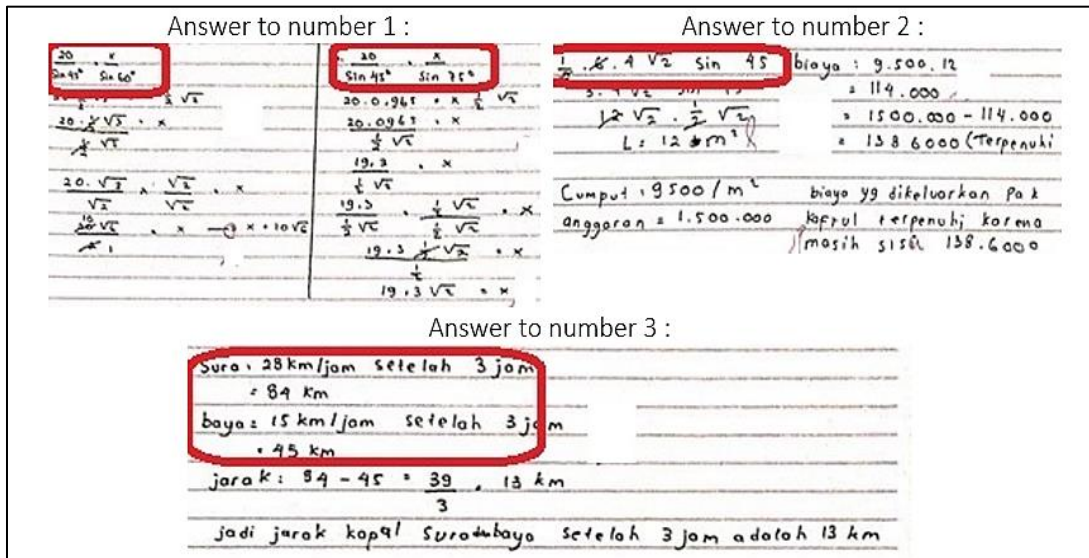 Answer to number 1 :
20/Sin 45° = x/Sin 60°
20 . ½√3 = x
½√2
20 . √3/√2 × √2/√2 = x
20√6 = x → x = 10√6
20/Sin 45° = x/Sin 75°
20.0,965 = x ½ √2
20.0965/½√2 = x
19.3/½√2 = x
19.3/½√2 . ½√2/½√2 = x
19.3 ½√2/½ = x
19.3 √2 = x
Answer to number 2 :
½ . 6 . 4 √2 Sin 45
12 √2 . ½ √2
L = 12 m²
biaya : 9.500.12
= 114.000
= 1500.000 - 114.000
= 138 6000 (Terpenuhi
Cumput : 9500 / m²
anggaran = 1.500.000
biaya yg dikeluarkan Pak
terpenuhi karena
masih sisa 138.6000
Answer to number 3 :
Sura : 28 km/jam setelah 3 jam
= 84 km
baya = 15 km/jam setelah 3 jam
= 45 km
jarak : 84 - 45 = 39/3 = 13 km
jadi jarak kapal Sura baya setelah 3 jam adalah 13 km